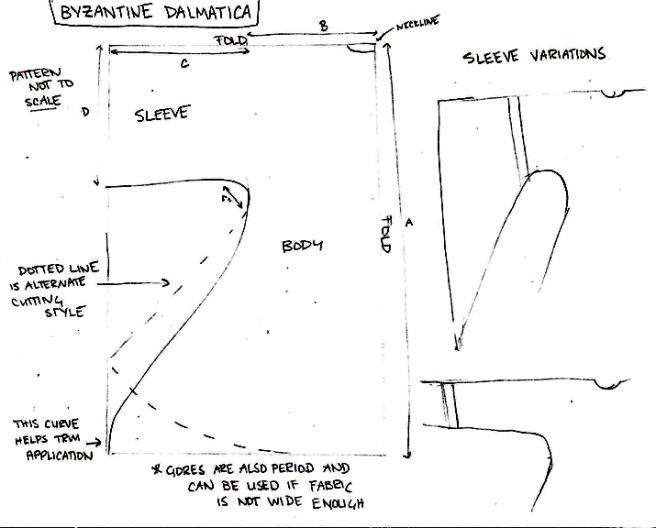 BYZANTINE DALMATICA
B
NECKLINE
FOLD
C
SLEEVE VARIATIONS
PATTERN
NOT TO
SCALE
D
SLEEVE
A
FOLD
BODY
DOTTED LINE
IS ALTERNATE
CUTTING
STYLE
THIS CURVE
HELPS TRIM
APPLICATION
* GORES ARE ALSO PERIOD AND
CAN BE USED IF FABRIC
IS NOT WIDE ENOUGH